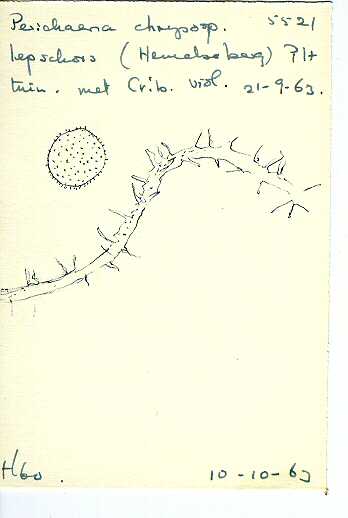 Perichaena chrysosp. 5521
Iepschors (Hemelseberg) Plt
tuin. met Crib. viol. 21-9-63.
H60.
10-10-63